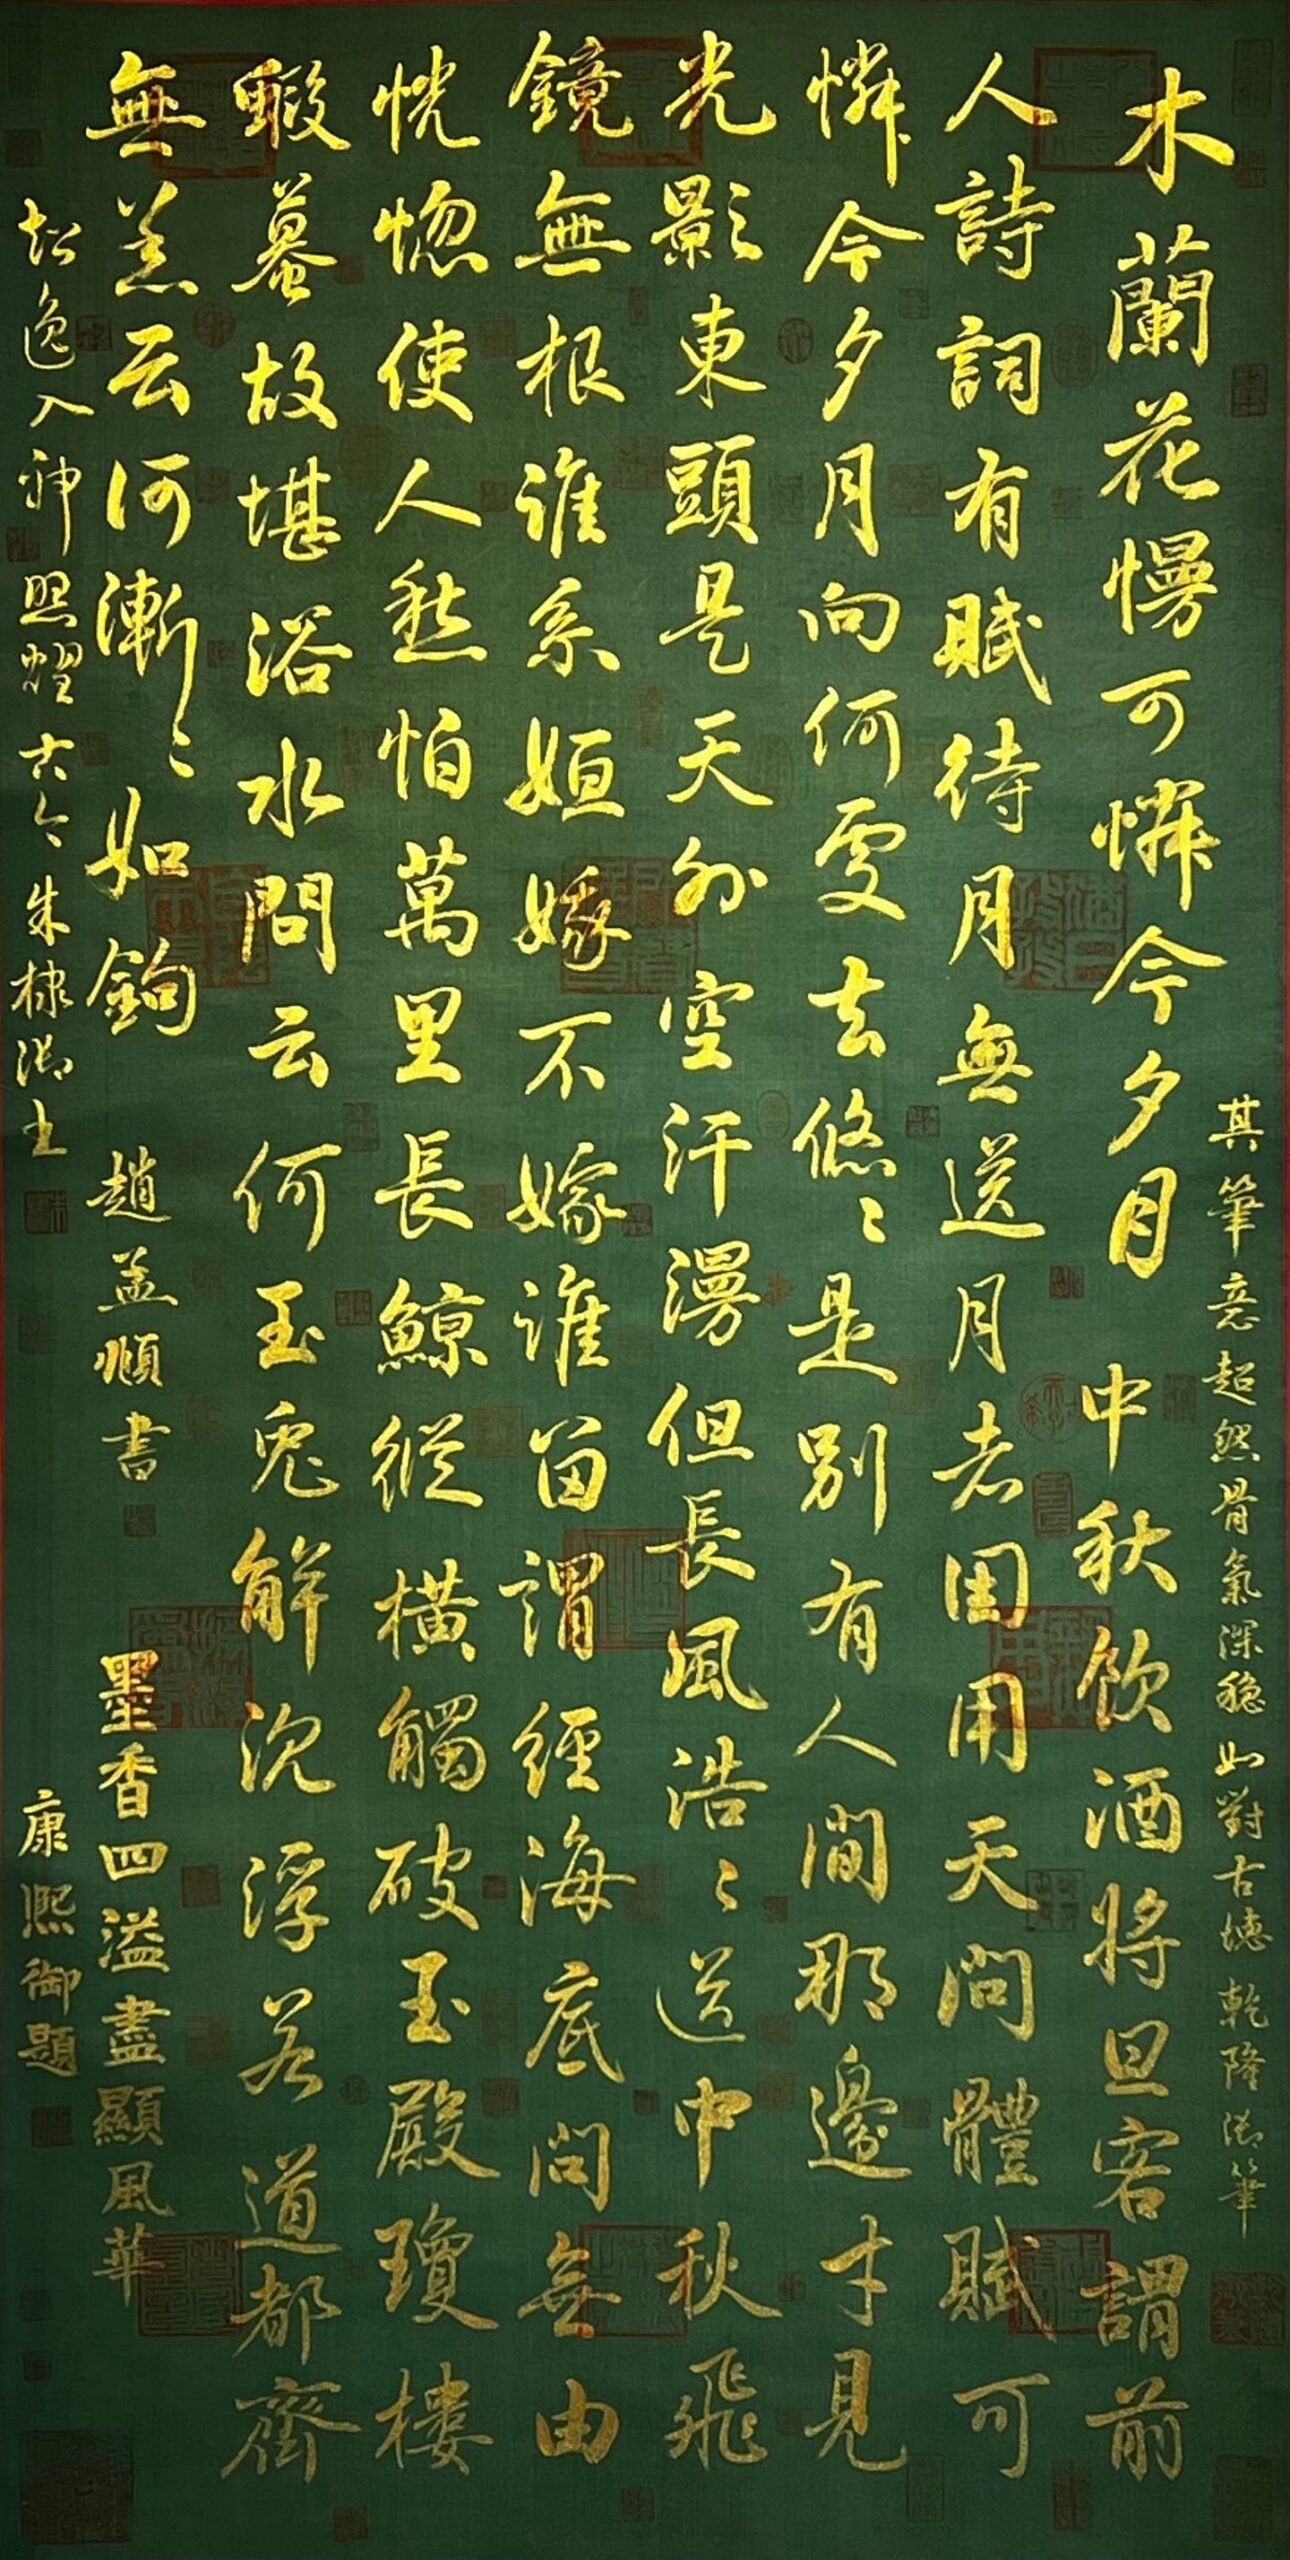 其筆意超然骨氣深穩如對古 乾隆御筆
木蘭花慢可憐今夕月 中秋飲酒將旦客謂前
人詩詞有賦待月無送月者因用天問體賦可
憐今夕月向何處去悠〻是別有人間那邊才見
光影東頭是天外空汗漫但長風浩〻送中秋飛
鏡無根誰系姮娥不嫁誰留謂經海底問無由
恍惚使人愁怕萬里長鯨縱橫觸破玉殿瓊樓
蝦蟇故堪浴水問云何玉兔解沉浮若道都齊
無恙云何漸〻如鉤 趙孟頫書 墨香四溢盡顯風華
超逸入神照耀古今朱棣御 康熙御題